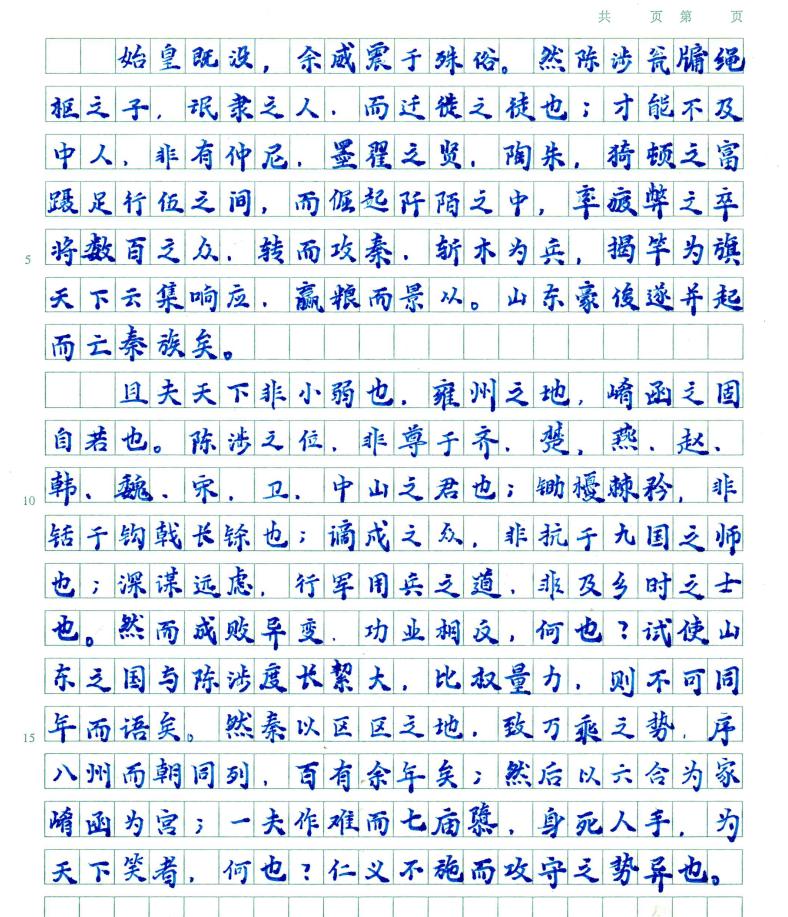 共 页 第 页
始皇既没，余威震于殊俗。然陈涉瓮牖绳
枢之子，氓隶之人，而迁徙之徒也；才能不及
中人，非有仲尼，墨翟之贤，陶朱，猗顿之富
蹑足行伍之间，而倔起阡陌之中，率疲弊之卒
5 将数百之众，转而攻秦，斩木为兵，揭竿为旗
天下云集响应，赢粮而景从。山东豪俊遂并起
而亡秦族矣。
且夫天下非小弱也，雍州之地，崤函之固
自若也。陈涉之位，非尊于齐、楚，燕、赵、
10 韩、魏、宋、卫、中山之君也；锄櫌棘矜，非
铦于钩戟长铩也；谪戍之众，非抗于九国之师
也；深谋远虑，行军用兵之道，非及乡时之士
也。然而成败异变，功业相反，何也？试使山
东之国与陈涉度长絜大，比权量力，则不可同
15 年而语矣。然秦以区区之地，致万乘之势，序
八州而朝同列，百有余年矣；然后以六合为家
崤函为宫；一夫作难而七庙隳，身死人手，为
天下笑者，何也？仁义不施而攻守之势异也。